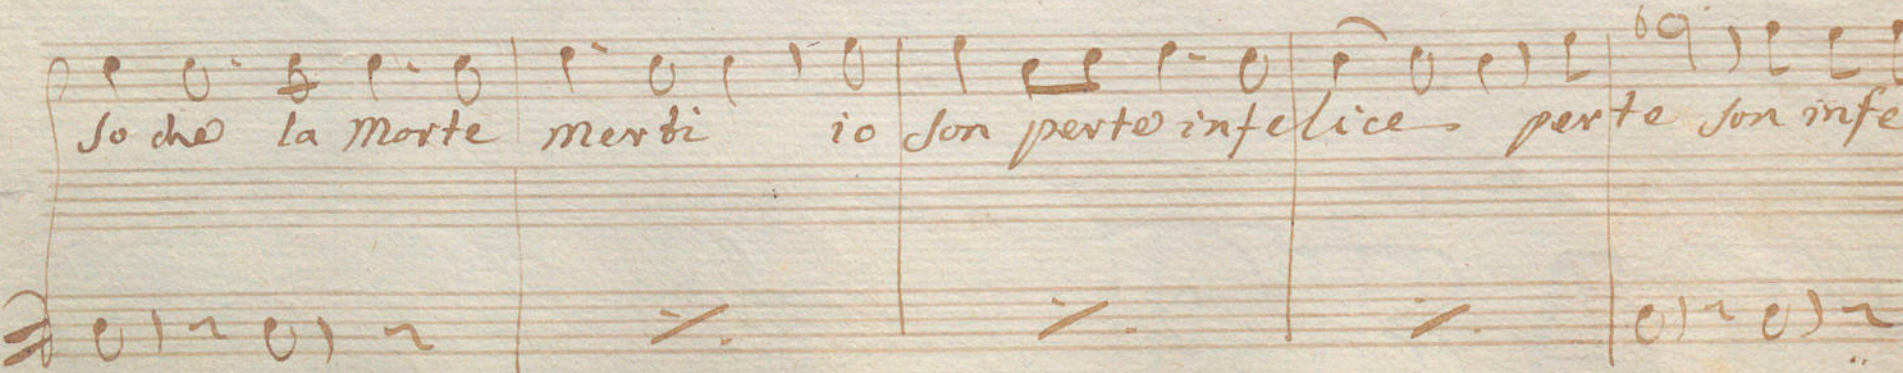 so che la Morte merti io son perte infelice perte son infe